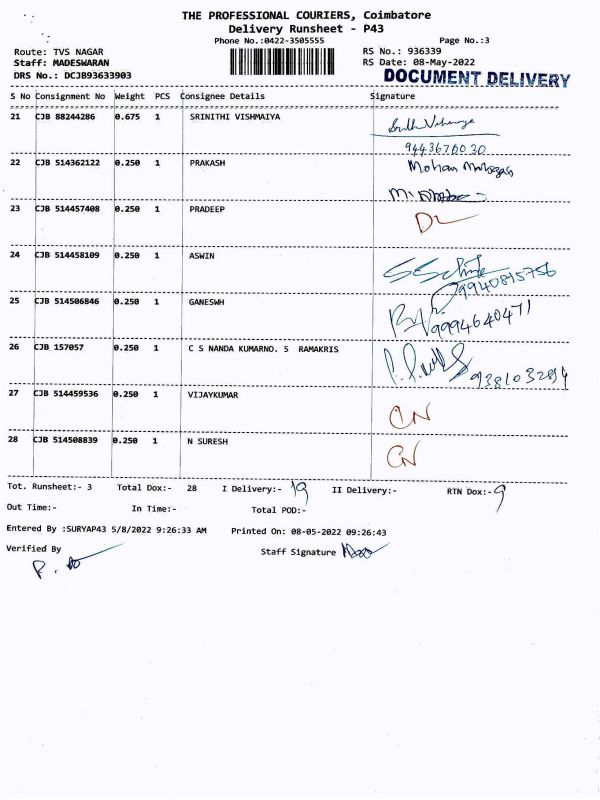 THE PROFESSIONAL COURIERS, Coimbatore
Delivery Runsheet - P43
Phone No.:0422-3505555
Page No.:3
Route: TVS NAGAR
RS No.: 936339
Staff: MADESWARAN
RS Date: 08-May-2022
DRS No.: DCJB93633903
DOCUMENT DELIVERY
S No Consignment No Weight PCS Consignee Details Signature
21 CJB 88244286 0.675 1 SRINITHI VISHMAIYA
9443676030
22 CJB 514362122 0.250 1 PRAKASH Mohan
23 CJB 514457408 0.250 1 PRADEEP DL
24 CJB 514458109 0.250 1 ASWIN
9940815756
25 CJB 514506846 0.250 1 GANESWH
9994640471
26 CJB 157057 0.250 1 C S NANDA KUMARNO. 5 RAMAKRIS
9381032894
27 CJB 514459536 0.250 1 VIJAYKUMAR CN
28 CJB 514508839 0.250 1 N SURESH CN
Tot. Runsheet:- 3 Total Dox:- 28 I Delivery:- 19 II Delivery:- RTN Dox:- 9
Out Time:- In Time:- Total POD:-
Entered By :SURYAP43 5/8/2022 9:26:33 AM Printed On: 08-05-2022 09:26:43
Verified By Staff Signature